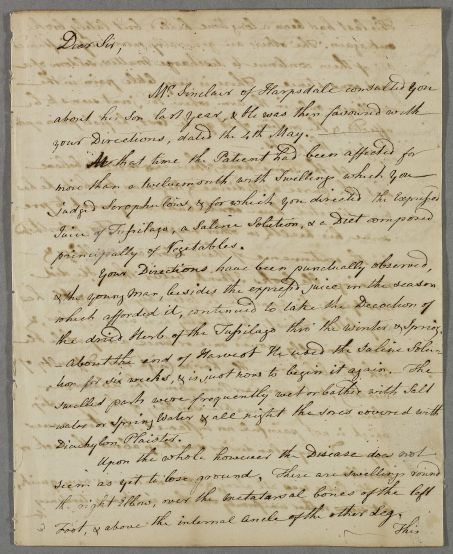 Dear Sir,
Mr. Sinclair of Harpsdale consulted you
about his Son last year, & He was then favoured with
your Directions, dated the 4th May.
At that time the Patient had been affected for
more than a twelvemonth with Swellings which you
judged Scrophulous, & for which you directed the Express'd
Juice of Tussilago, a Saline Solution, & a Diet composed
principally of Vegetables.
Your Directions have been punctually observed,
& the young Man, besides the express'd juice in the season
which afforded it, continued to take the Decoction of
the dried Herb of the Tussilago thro' the Winter & Spring.
About the end of Harvest He used the Saline Solu-
tion for six weeks, & is just now to begin it again. The
swelled parts were frequently wet or bathed with Salt
water or Spring Water & all night the sores covered with
Diachylon Plaister.
Upon the whole however the Disease does not
seem as yet to lose ground. There are swellings round
the right Elbow, over the metatarsal bones of the left
Foot, & above the internal ancle of the other Leg.
This